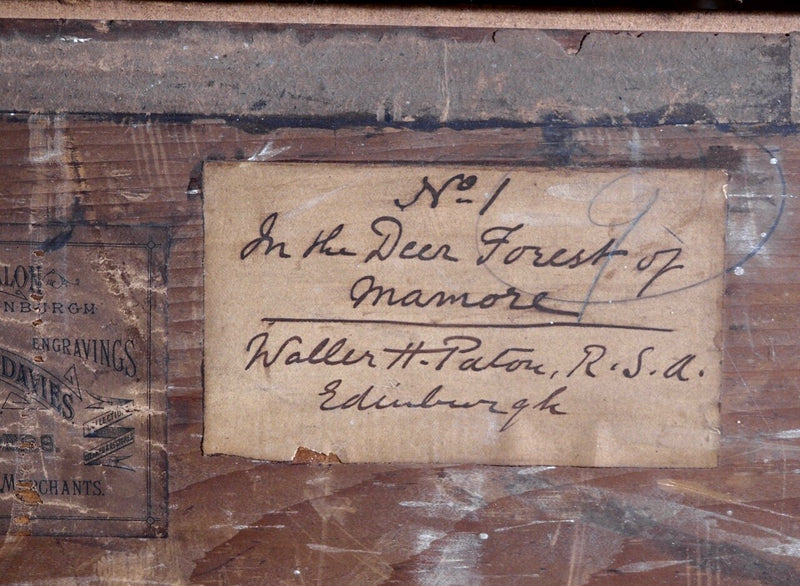 No. 1
In the Deer Forest of
Mamore
Waller H. Paton, R.S.A.
Edinburgh
9
ENGRAVINGS
DAVIES
MERCHANTS.